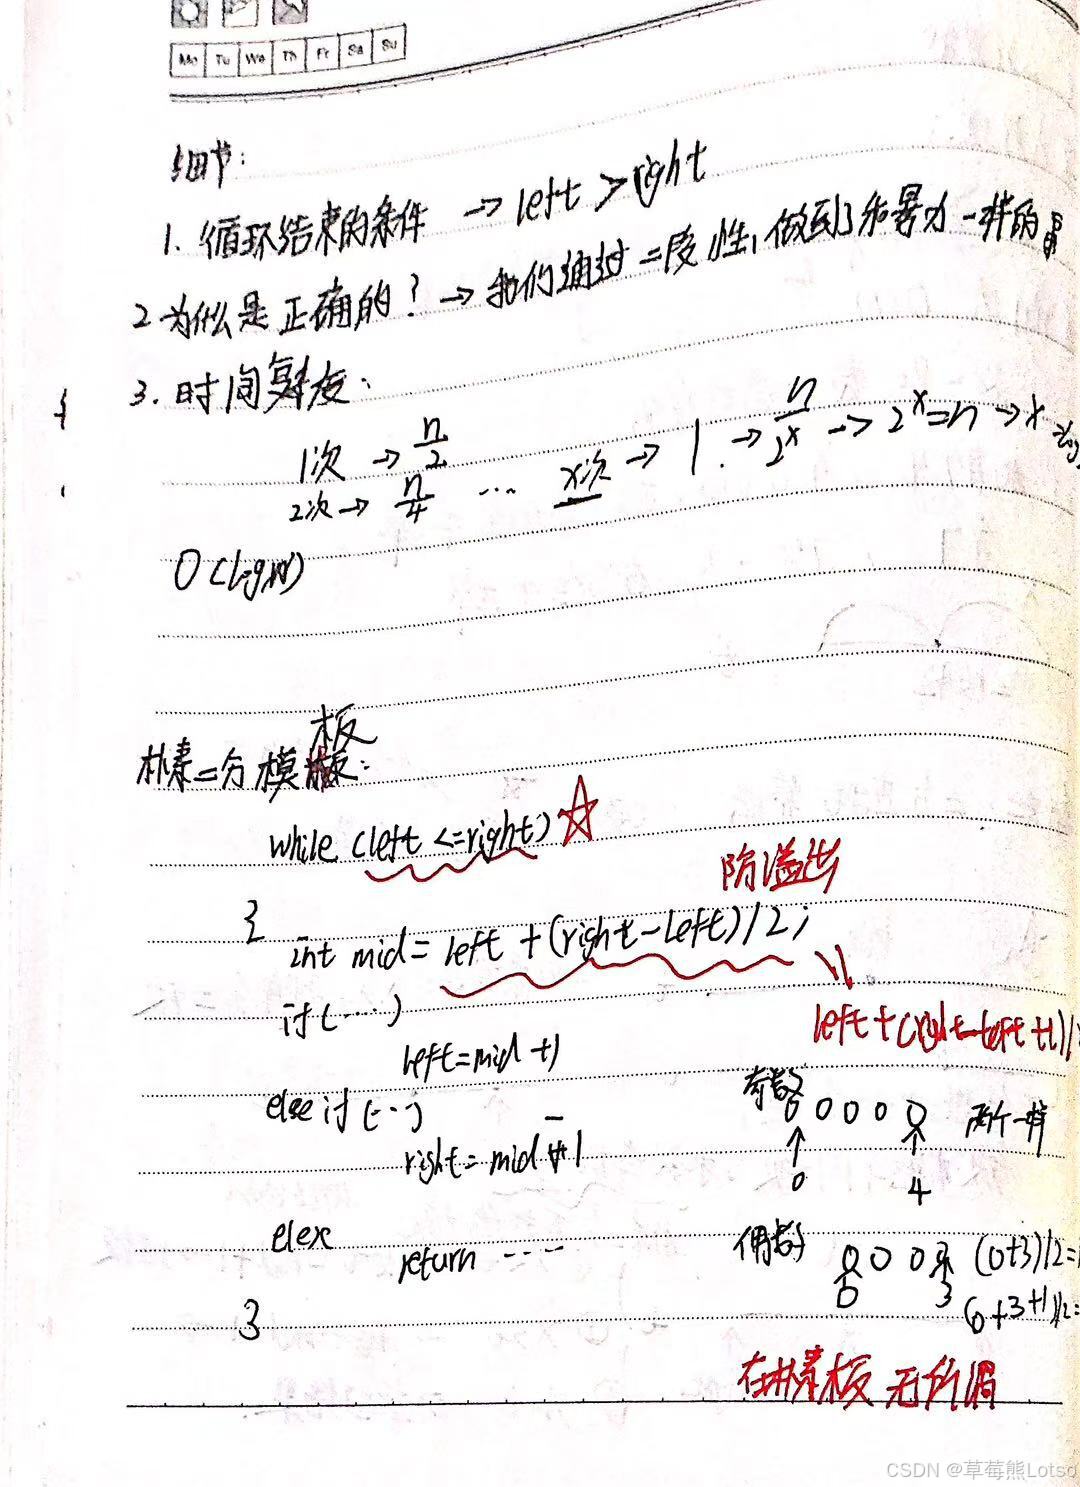 Mo Tu We Th Fr Sa Su
细节:
1. 循环结束的条件 → left > right
2 为什么是正确的? → 我们通过二段性,做到了和暴力一样的
3. 时间复杂度:
1次 → n/2
2次 → n/4 ... x次 → 1. → n/2^x → 2^x=n → x
O(logN)
板
朴素二分模板:
while (left <=right) ☆
防溢出
{
int mid = left +(right-left)/2;
if (....)
left+(right-left+1)/
left=mid +1
奇数
else if (...)
0 0 0 0 0 两个一样
right = mid -1
0 4
else
return ....
偶数 0 0 0 0 (0+3)/2=
0 3 (0+3+1)/2=
}
在朴素板 无所谓
CSDN @草莓熊Lotso